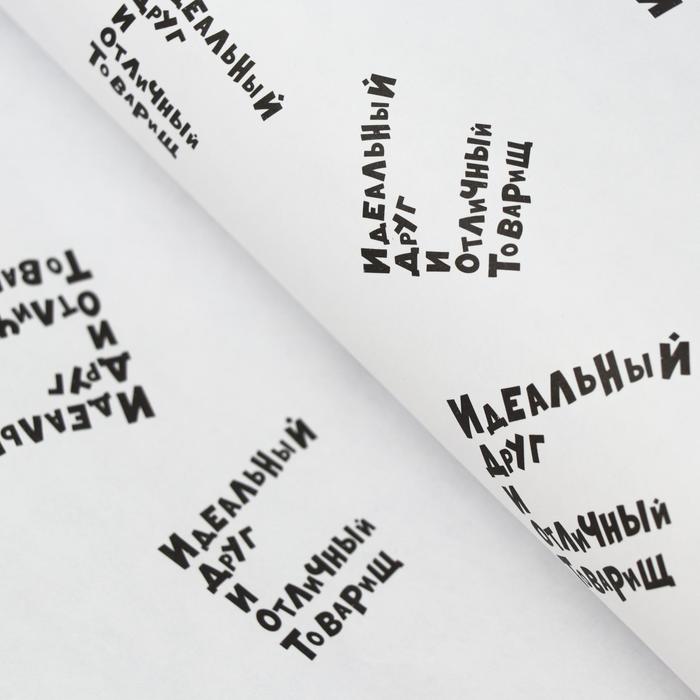 ИДЕАЛЬНЫЙ
ДРУГ
И
ОТЛИЧНЫЙ
ТОВАРИЩ
ИДЕАЛЬНЫЙ
ДРУГ
И
ОТЛИЧНЫЙ
ТОВАРИЩ
ИДЕАЛЬНЫЙ
ДРУГ
И
ОТЛИЧНЫЙ
ТОВАРИЩ
ИДЕАЛЬНЫЙ
ДРУГ
И
ОТЛИЧНЫЙ
ТОВАРИЩ
ДРУГ
И